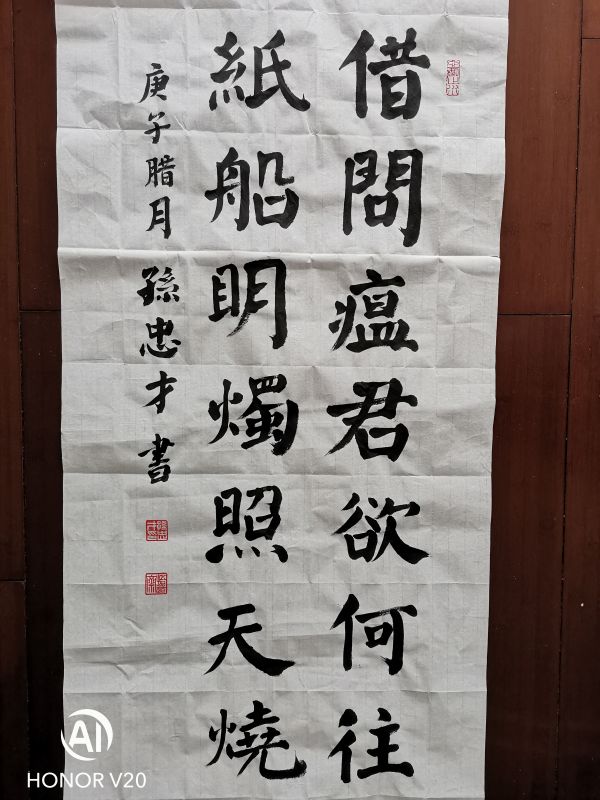 借問瘟君欲何往
紙船明燭照天燒
庚子腊月 孫忠才書
AI
HONOR V20